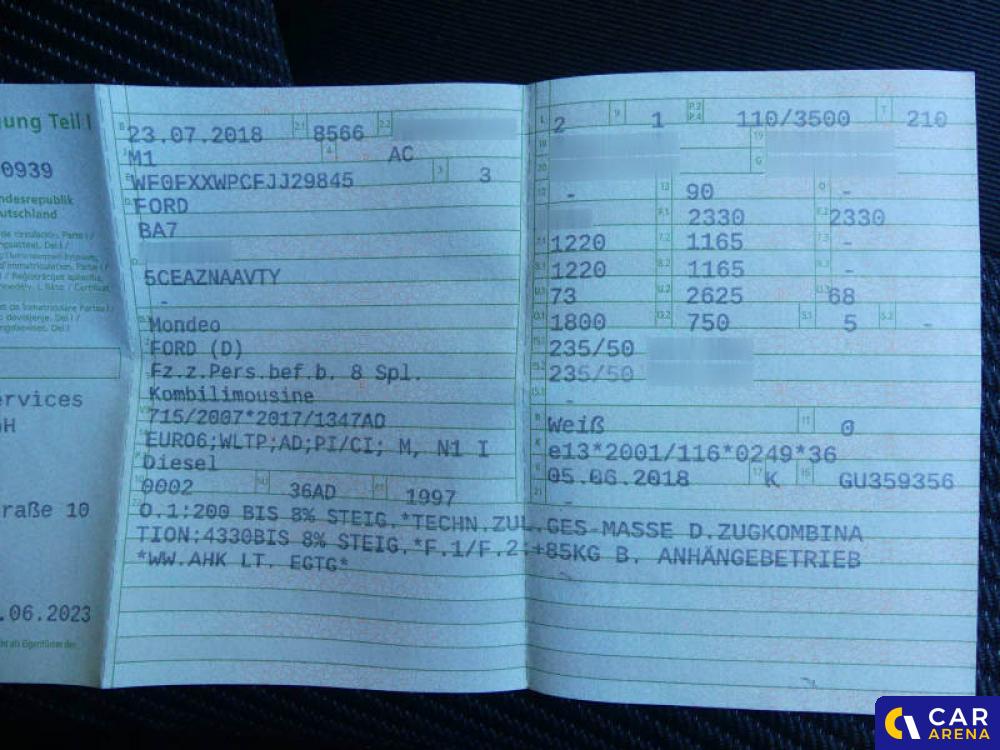 ung Teil I
0939
ndesrepublik
eutschland
ervices
H
raße 10
.06.2023
B 23.07.2018 2.1 8566 2.2
M1 4 AC
WF0FXXWPCFJJ29845 3 3
FORD
BA7
5CEAZNAAVTY
-
Mondeo
FORD (D)
Fz.z.Pers.bef.b. 8 Spl.
Kombilimousine
715/2007*2017/1347AD
EURO6;WLTP;AD;PI/CI; M, N1 I
Diesel
0002 36AD 1997
L 2 9 1 P.2 P.4 110/3500 T 210
19
G
- 90 -
F.1 2330 F.2 2330
1220 1165 -
1220 1165 -
73 2625 68
1800 750 S.1 5 S.2 -
235/50
235/50
-
R Weiß 11 0
K e13*2001/116*0249*36
05.06.2018 17 K 16 GU359356
21 -
O.1:200 BIS 8% STEIG.*TECHN.ZUL.GES-MASSE D.ZUGKOMBINA
TION:4330BIS 8% STEIG.*F.1/F.2:+85KG B. ANHÄNGEBETRIEB
*WW.AHK LT. EGTG*
CAR
ARENA